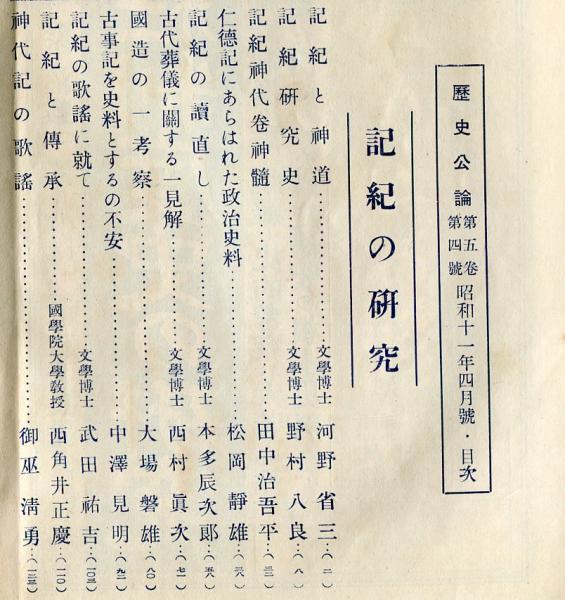 歷史公論 第五卷第四號 昭和十一年四月號・目次
記紀の硏究
記紀と神道 文學博士 河野省三 (二)
記紀硏究史 文學博士 野村八良 (八)
記紀神代卷神髓 田中治吾平 (二二)
仁德記にあらはれた政治史料 松岡靜雄 (三八)
記紀の讀直し 文學博士 本多辰次郞 (五八)
古代葬儀に關する一見解 文學博士 西村眞次 (七一)
國造の一考察 大場磐雄 (八〇)
古事記を史料とするの不安 中澤見明 (九二)
記紀の歌謠に就て 文學博士 武田祐吉 (一〇三)
記紀と傳承 國學院大學敎授 西角井正慶 (一一〇)
神代記の歌謠 御巫淸勇